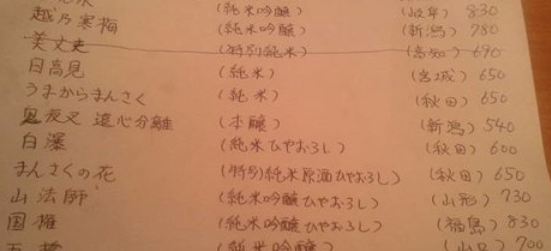 (純米吟醸) (岐阜) 830
越乃寒梅 (純米吟醸) (新潟) 780
美丈夫 (特別純米) (高知) 690
日高見 (純米) (宮城) 650
うまからまんさく (純米) (秋田) 650
鬼夜叉 遠心分離 (本醸) (新潟) 540
白瀑 (純米ひやおろし) (秋田) 600
まんさくの花 (特別)純米原酒ひやおろし) (秋田) 650
山法師 (純米吟醸ひやおろし) (山形) 730
国権 (純米吟醸ひやおろし) (福島) 830
五橋 (純米吟醸ひやおろし) (山口) 700